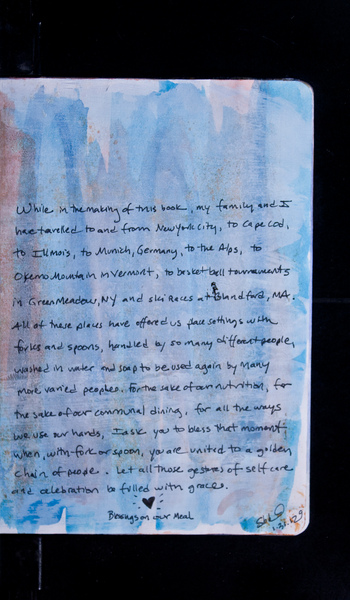 While in the making of this book, my family and I
have travelled to and from New York City, to Cape Cod,
to Illinois, to Munich, Germany, to the Alps, to
Okemo Mountain in Vermont, to basket ball tournaments
in Green Meadow, NY and ski Races at Blandford, MA.
All of these places have offered us place settings with
forks and spoons, handled by so many different people,
washed in water and soap to be used again by many
more varied peoples. For the sake of our nutrition, for
the sake of our communal dining, for all the ways
we use our hands, I ask you to bless that moment,
when, with fork or spoon, you are united to a golden
chain of people. Let all those gestures of self care
and celebration be filled with grace.
Blessings on our Meal